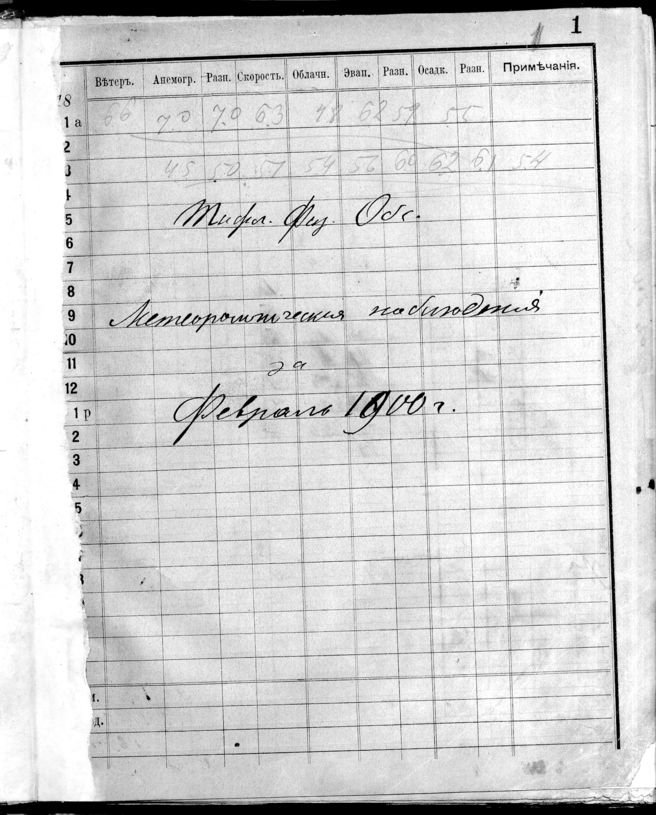 1
Вѣтеръ. Анемогр. Разн. Скорость. Облачн. Эвап. Разн. Осадк. Разн. Примѣчанія.
1 a 66 70 70 63 48 62 59 55
2
3 45 50 51 54 56 60 62 61 54
4
5 Тифл. Физ. Обс.
6
7
8
9 Метеорологическия наблюдения
10
11 за
12 Февраль 1900 г.
1 p
2
3
4
5